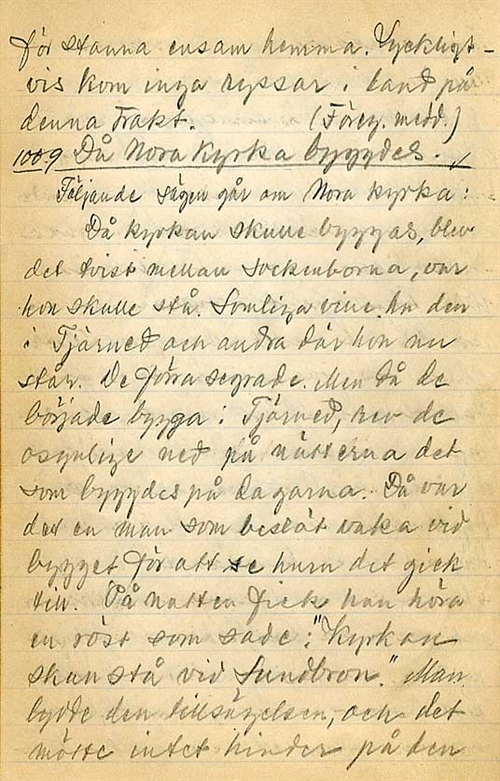 för stanna ensam hemma. Lyckligt-
vis kom inga ryssar i land på
denna trakt. (Förey. medd.)
1009 Då Nora kyrka byggdes.
Följande sägen går om Nora kyrka:
Då kyrkan skulle byggas, blev
det tvist mellan sockenborna, var
hon skulle stå. Somliga ville ha den
i Tjärned och andra där hon nu
står. De förra segrade. Men då de
började bygga i Tjärned, rev de
osynlige ned på nätterna det
som byggdes på dagarna. Då var
det en man som beslöt vaka vid
bygget för att se hur det gick
till. På natten fick han höra
en röst som sade: "Kyrkan
skall stå vid Sundbron." Man
lydde den tillsägelsen, och det
mötte intet hinder på den